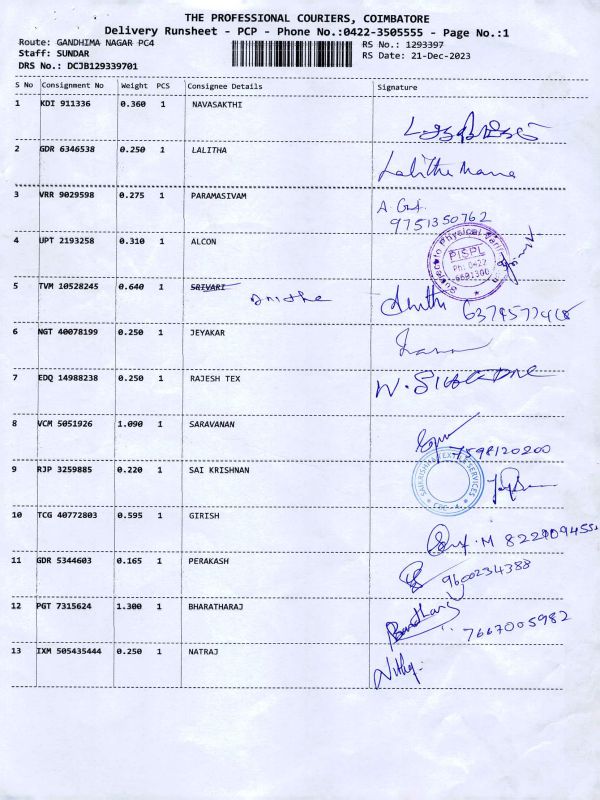 THE PROFESSIONAL COURIERS, COIMBATORE
Delivery Runsheet - PCP - Phone No.:0422-3505555 - Page No.:1
Route: GANDHIMA NAGAR PC4
RS No.: 1293397
Staff: SUNDAR
RS Date: 21-Dec-2023
DRS No.: DCJB129339701
S No Consignment No Weight PCS Consignee Details Signature
1 KDI 911336 0.360 1 NAVASAKTHI
2 GDR 6346538 0.250 1 LALITHA
Lalitha
3 VRR 9029598 0.275 1 PARAMASIVAM
9751350762
4 UPT 2193258 0.310 1 ALCON
PISPL
Ph: 0422
5 TVM 10528245 0.640 1 SRIVARI
6 NGT 40078199 0.250 1 JEYAKAR
7 EDQ 14988238 0.250 1 RAJESH TEX
8 VCM 5051926 1.090 1 SARAVANAN
7598120200
9 RJP 3259885 0.220 1 SAI KRISHNAN
10 TCG 40772803 0.595 1 GIRISH
11 GDR 5344603 0.165 1 PERAKASH
9600234388
12 PGT 7315624 1.300 1 BHARATHARAJ
7667005982
13 IXM 505435444 0.250 1 NATRAJ